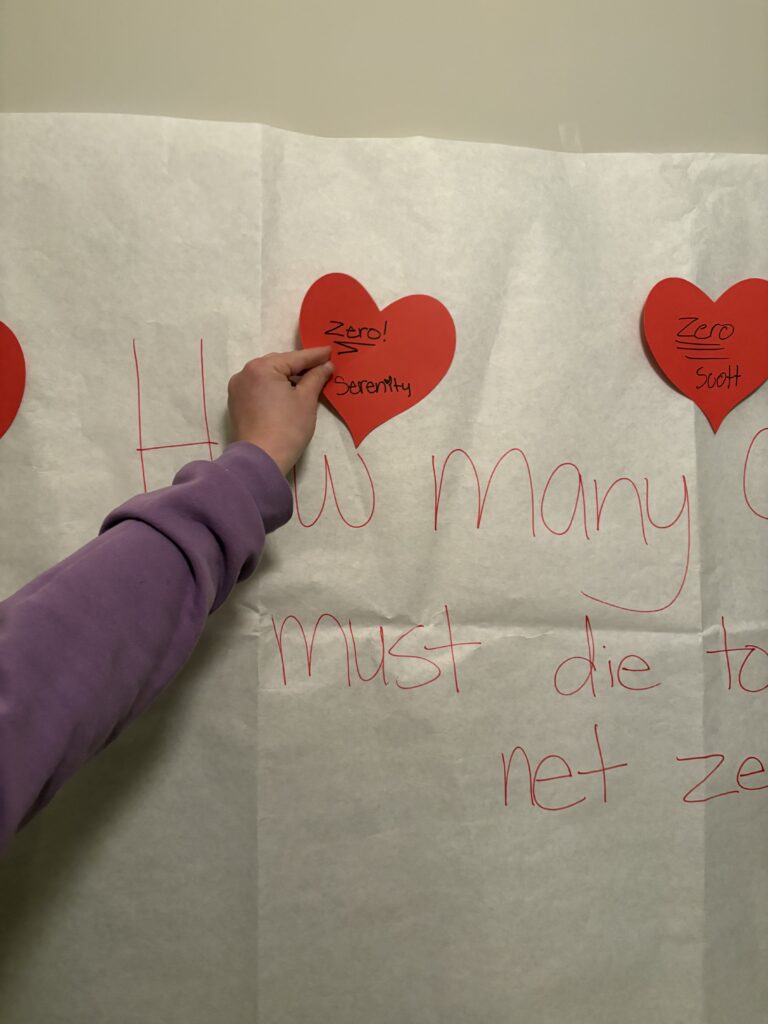 Zero!
Serenity
Zero
Scott
How many
must die to
net ze